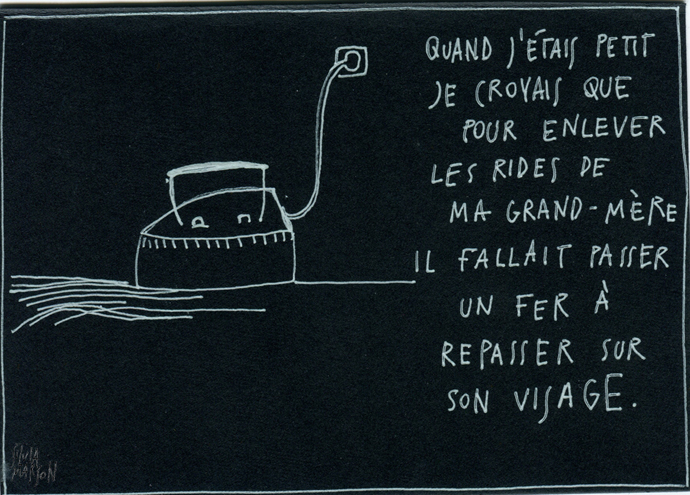 QUAND J'ÉTAIS PETIT
JE CROYAIS QUE
POUR ENLEVER
LES RIDES DE
MA GRAND-MÈRE
IL FALLAIT PASSER
UN FER À
REPASSER SUR
SON VISAGE.